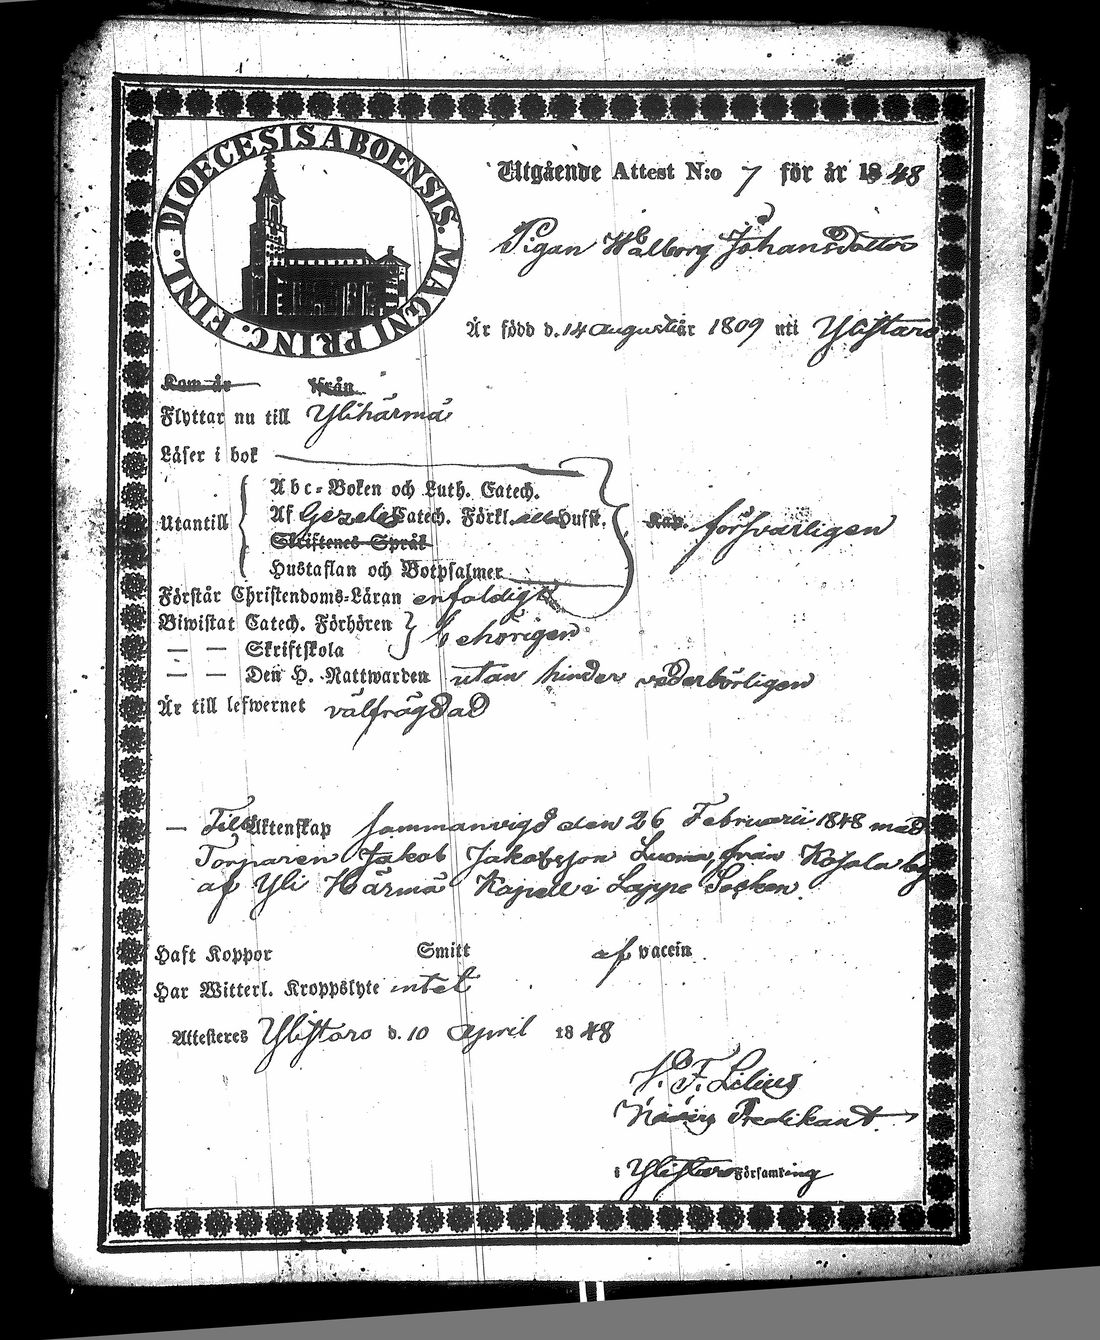 DIOECESIS ABOENSIS. MAGNI PRINC. FINL.
Utgående Attest N:o 7 för år 1848
Pigan Walborg Johansdotter
Är född d. 14 Augusti år 1809 uti Ylistaro
Kom år Ifrån
Flyttar nu till Ylihärmä
Läser i bok
Utantill
Abc-Boken och Luth. Catech.
Af Gezelii Catech. Förkl. Hufst.
Skriftenes Språk
Hustaflan och Botpsalmer
Kap. försvarligen
Förstår Christendoms-Läran enfaldigt
Biwistat Catech. Förhören
— — Skriftskola
behörigen
— — Den H. Nattwarden utan hinder vederbörligen
Är till lefwernet välfrägdad
— Till Äktenskap sammanvigd den 26 Februarii 1848 med
Torparen Jakob Jakobsson Luoma, från Kosola by
af Yli Härmä Kapell i Lappo Socken.
Haft Koppor Smitt af vaccin
Har Witterl. Kroppslyte intet
Attesteres Ylistaro d. 10 April 1848
F. Lilius
Predikant
i Ylistaro Församling